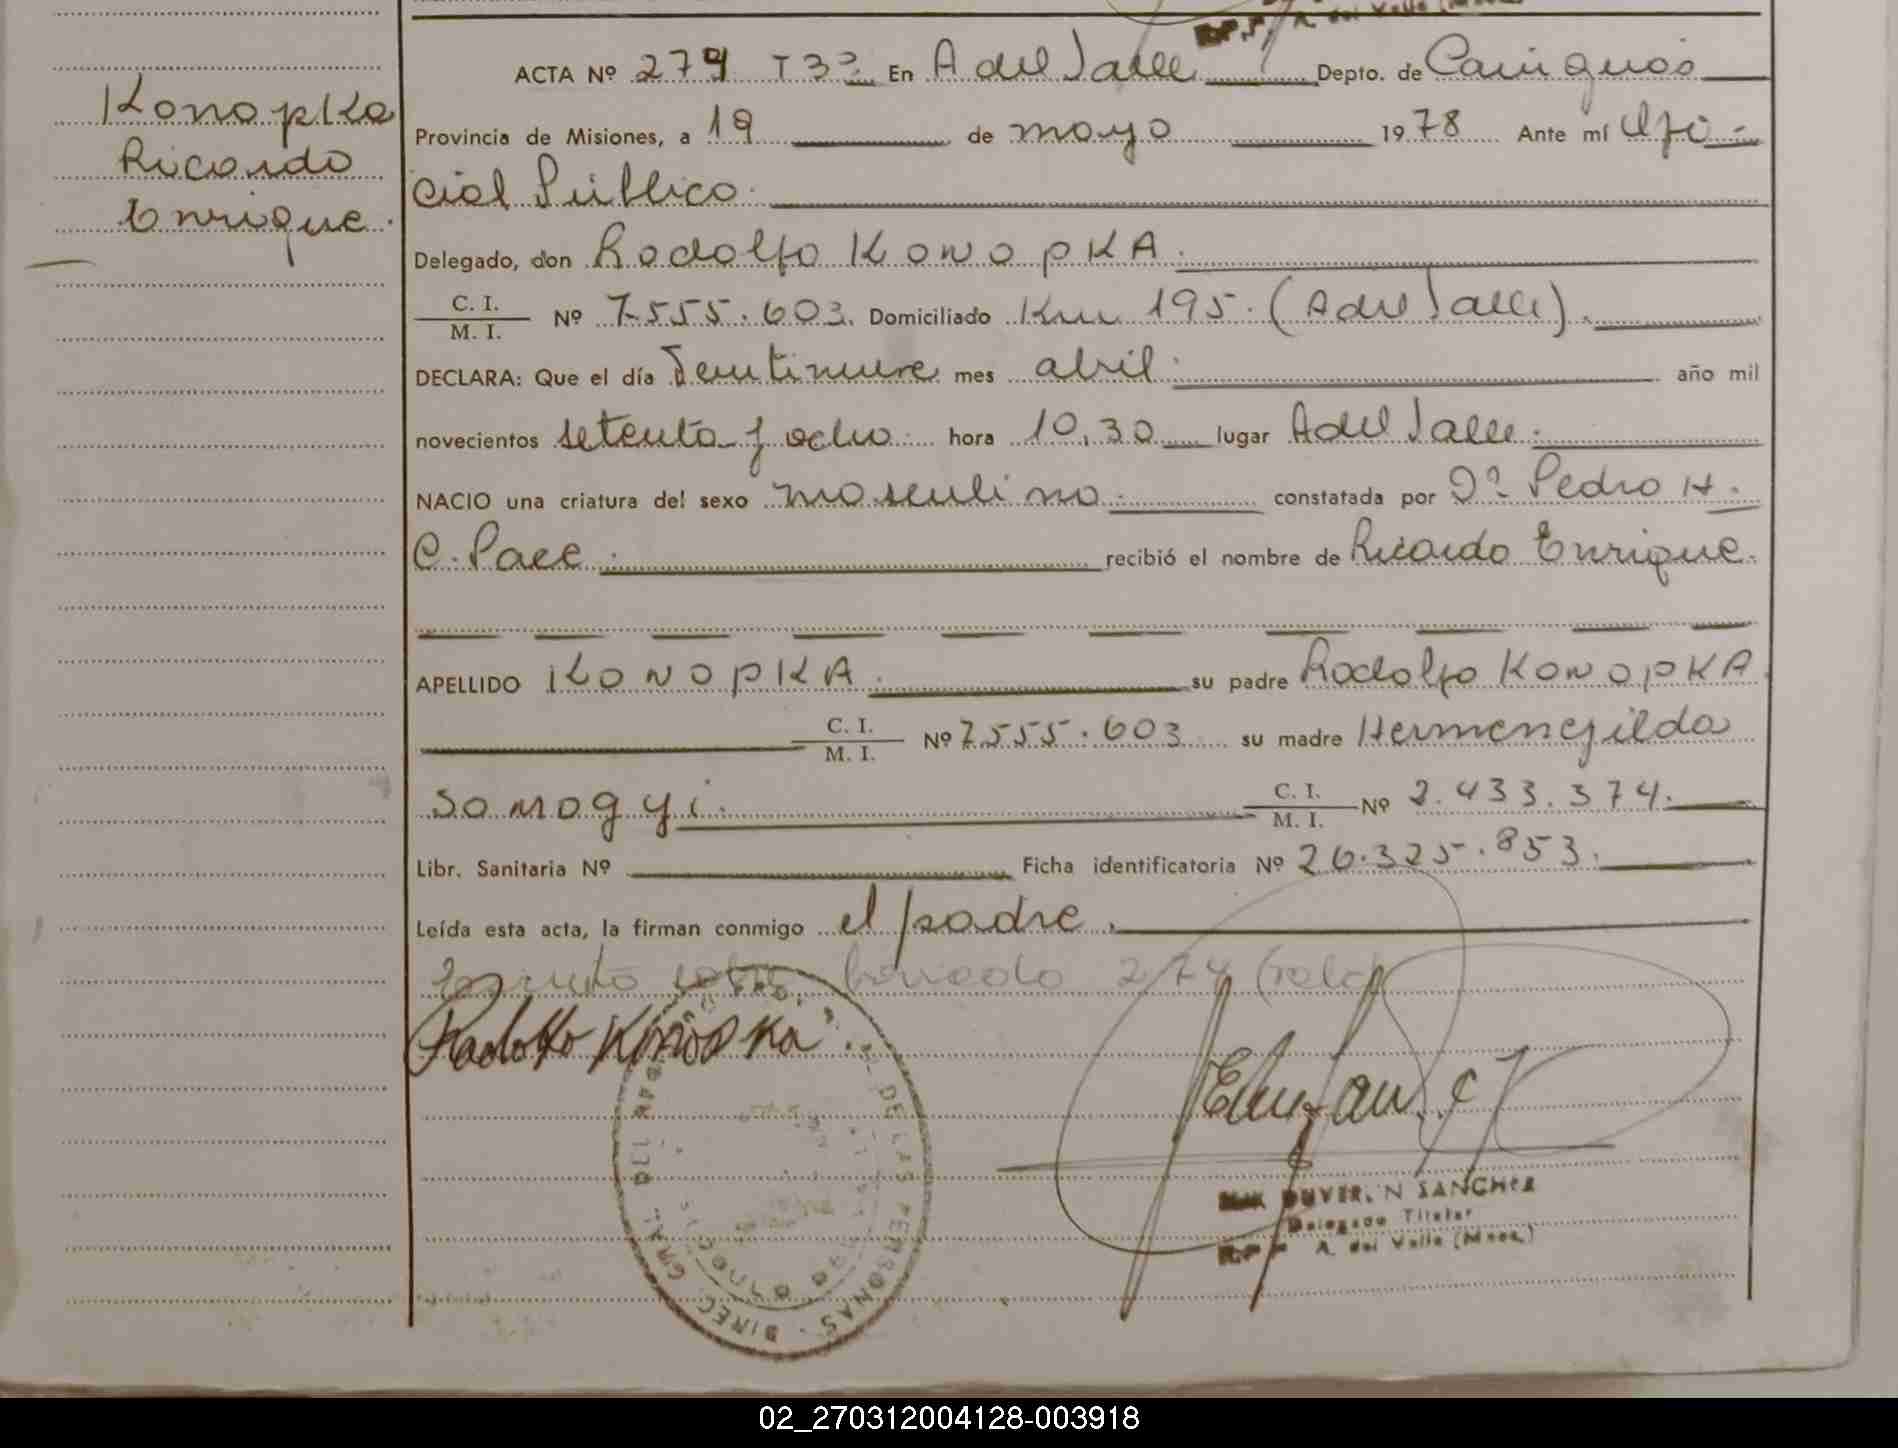 Konopka
Ricardo
Enrique.
ACTA Nº 274 T3º En A del Valle Depto. de Cainguás
Provincia de Misiones, a 19 de mayo 1978 Ante mí Ofi-
cial Público.
Delegado, don Rodolfo KONOPKA.
C. I.
M. I. Nº 7.555.603. Domiciliado Km 195. (A del Valle).
DECLARA: Que el día Veintinueve mes abril. año mil
novecientos setenta y ocho. hora 10,30 lugar A del Valle.
NACIO una criatura del sexo masculino. constatada por Dº Pedro H.
C. Pace. recibió el nombre de Ricardo Enrique.
APELLIDO KONOPKA. su padre Rodolfo KONOPKA
C. I.
M. I. Nº 7.555.603 su madre Hermenegilda
Somogyi. C. I.
M. I. Nº 2.433.374.
Libr. Sanitaria Nº Ficha identificatoria Nº 26.325.853.
Leída esta acta, la firman conmigo el padre.
sobre borrado 274 (vale)
Rodolfo Konopka.
DUVER. N SANCHEZ
Delegado Titular
R.P.P A. del Valle (Mnes.)
DE LAS PERSONAS. DIREC. GRAL. DEL
02_270312004128-003918